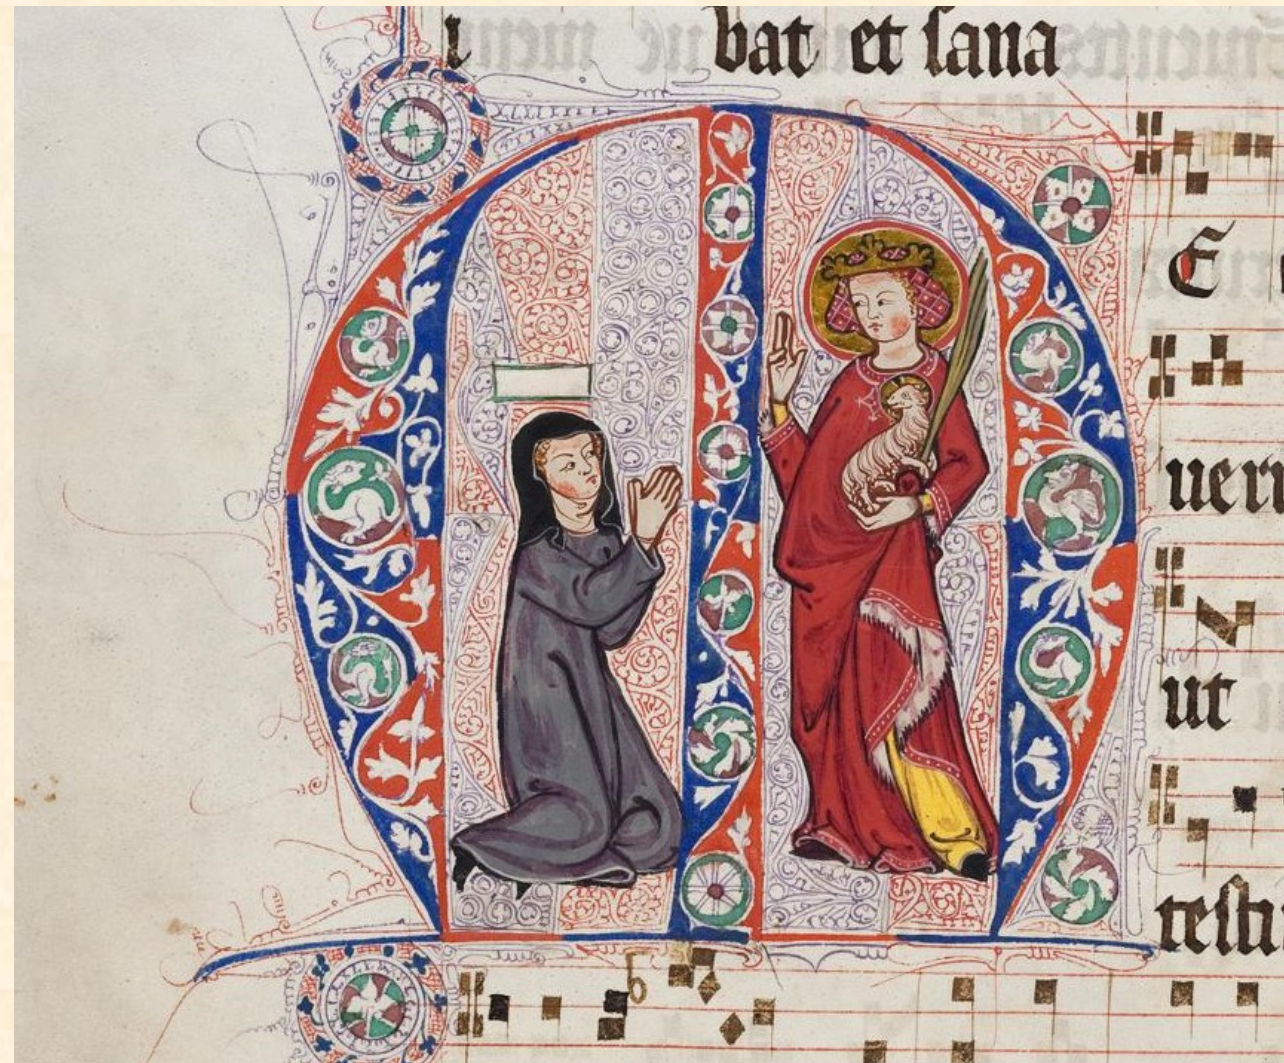 bat et ſana
E
uer
ut
teſti